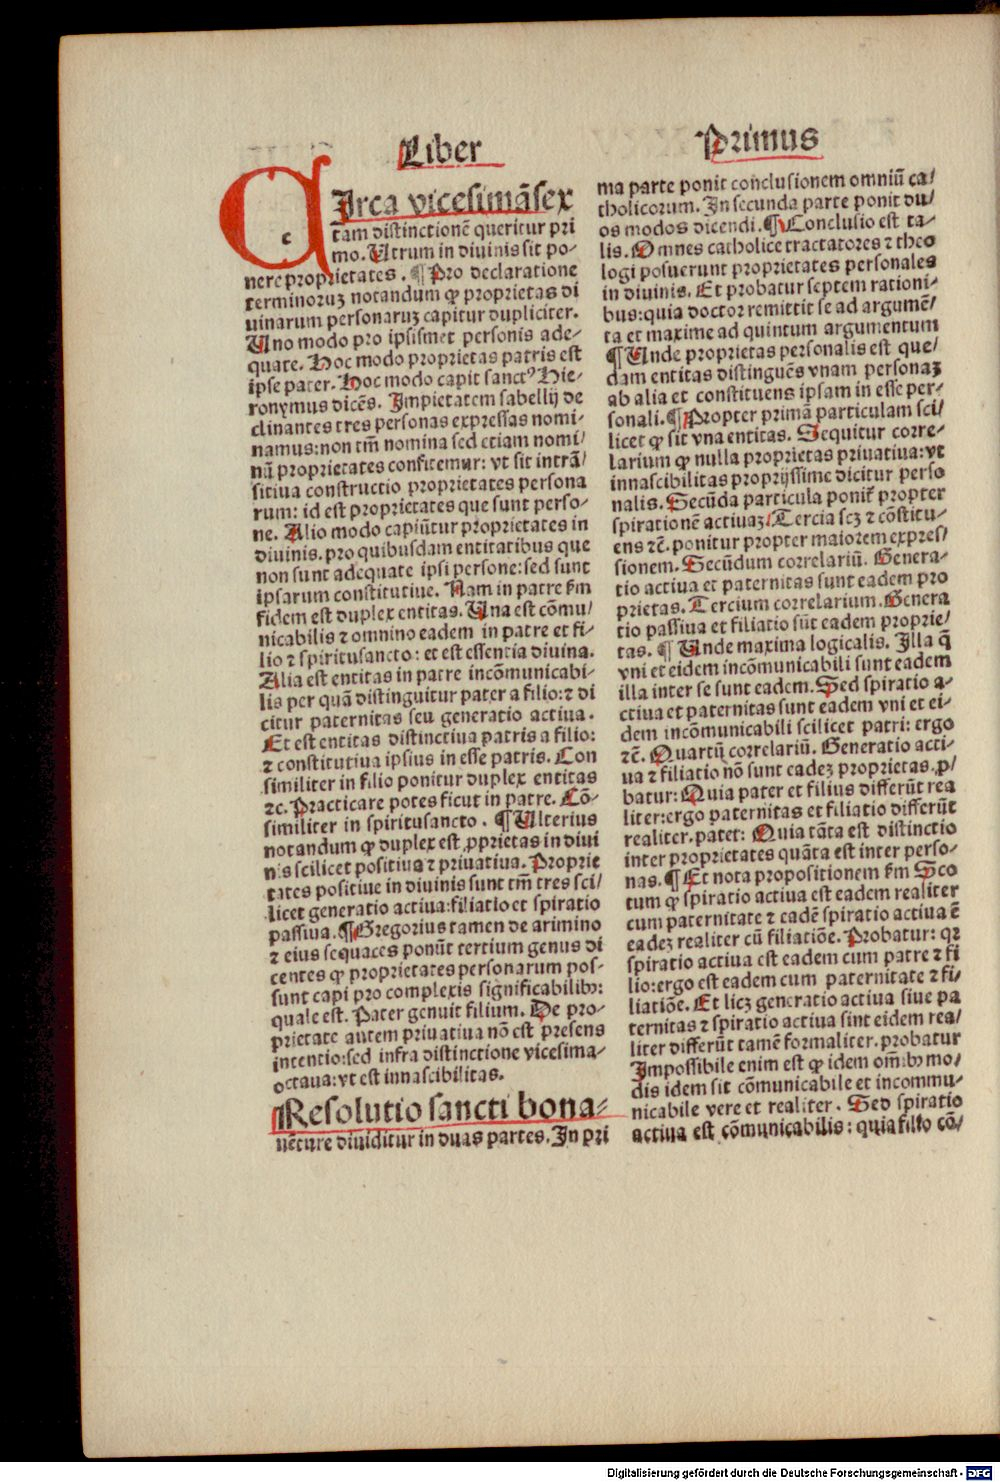 Liber
Primus
CIrca vicesimãsex
tam distinctionẽ queritur pri
mo. Utrum in diuinis sit po-
nere proprietates. ¶ Pro declaratione
terminoruꝫ notandum ꝙ proprietas di
uinarum personaruꝫ capitur dupliciter.
Uno modo pro ipsismet personis ade-
quate. Hoc modo proprietas patris est
ipse pater. Hoc modo capit sanctꝰ Hie-
ronymus dicẽs. Impietatem sabellij de
clinantes tres personas expressas nomi-
namus: non tm̃ nomina sed etiam nomi/
nũ proprietates confitemur: vt sit intrã/
sitiua constructio proprietates persona
rum: id est proprietates que sunt perso-
ne. Alio modo capiũtur proprietates in
diuinis. pro quibusdam entitatibus que
non sunt adequate ipsi persone: sed sunt
ipsarum constitutiue. Nam in patre ẜm
fidem est duplex entitas. Una est cõmu/
nicabilis ⁊ omnino eadem in patre et fi-
lio ⁊ spiritusancto: et est essentia diuina.
Alia est entitas in patre incõmunicabi-
lis per quã distinguitur pater a filio: ⁊ di
citur paternitas seu generatio actiua.
Et est entitas distinctiua patris a filio:
⁊ constitutiua ipsius in esse patris. Con
similiter in filio ponitur duplex entitas
⁊c. Practicare potes sicut in patre. Cõ-
similiter in spiritusancto. ¶ Ulterius
notandum ꝙ duplex est ꝓprietas in diui
nis scilicet positiua ⁊ priuatiua. Proprie
tates positiue in diuinis sunt tm̃ tres sci/
licet generatio actiua: filiatio et spiratio
passiua. ¶ Gregorius tamen de arimino
⁊ eius sequaces ponũt tertium genus di
centes ꝙ proprietates personarum pos-
sunt capi pro complexis significabilibꝫ:
quale est. Pater genuit filium. De pro-
prietate autem priuatiua nõ est presens
intentio: sed infra distinctione vicesima-
octaua: vt est innascibilitas.
¶ Resolutio sancti bona-
uẽture diuiditur in duas partes. In pri
ma parte ponit conclusionem omniũ ca/
tholicorum. In secunda parte ponit du/
os modos dicendi. ¶ Conclusio est ta-
lis. Omnes catholice tractatores ⁊ theo
logi posuerunt proprietates personales
in diuinis. Et probatur septem rationi-
bus: quia doctor remittit se ad argumẽ/
ta et maxime ad quintum argumentum
¶ Unde proprietas personalis est que/
dam entitas distinguẽs vnam personaꝫ
ab alia et constituens ipsam in esse per-
sonali. ¶ Propter primã particulam sci/
licet ꝙ sit vna entitas. Sequitur corre-
larium ꝙ nulla proprietas priuatiua: vt
innascibilitas proprijssime dicitur perso
nalis. Secũda particula ponit̃ propter
spirationẽ actiuaꝫ. Tercia scꝫ ⁊ cõstitu-
ens ⁊c̃. ponitur propter maiorem expres/
sionem. Secũdum correlariũ. Genera-
tio actiua et paternitas sunt eadem pro
prietas. Tercium correlarium. Genera
tio passiua et filiatio sũt eadem proprie/
tas. ¶ Unde maxima logicalis. Illa q̃
vni et eidem incõmunicabili sunt eadem
illa inter se sunt eadem. Sed spiratio a-
ctiua et paternitas sunt eadem vni et ei-
dem incõmunicabili scilicet patri: ergo
⁊c̃. Quartũ correlariũ. Generatio acti-
ua ⁊ filiatio nõ sunt eadeꝫ proprietas. ꝓ/
batur: Quia pater et filius differũt rea
liter: ergo paternitas et filiatio differũt
realiter. patet: Quia tãta est distinctio
inter proprietates quãta est inter perso-
nas. ¶ Et nota propositionem ẜm Sco
tum ꝙ spiratio actiua est eadem realiter
cum paternitate ⁊ eadẽ spiratio actiua ẽ
eadeꝫ realiter cũ filiatiõe. Probatur: qꝛ
spiratio actiua est eadem cum patre ⁊ fi
lio: ergo est eadem cum paternitate ⁊ fi-
liatiõe. Et licꝫ generatio actiua siue pa
ternitas ⁊ spiratio actiua sint eidem rea/
liter differũt tamẽ formaliter. probatur
Impossibile enim est ꝙ idem om̃ibꝫ mo/
dis idem sit cõmunicabile et incommu-
nicabile vere et realiter. Sed spiratio
actiua est cõmunicabilis: quia filio cõ/
Digitalisierung gefördert durch die Deutsche Forschungsgemeinschaft - DFG